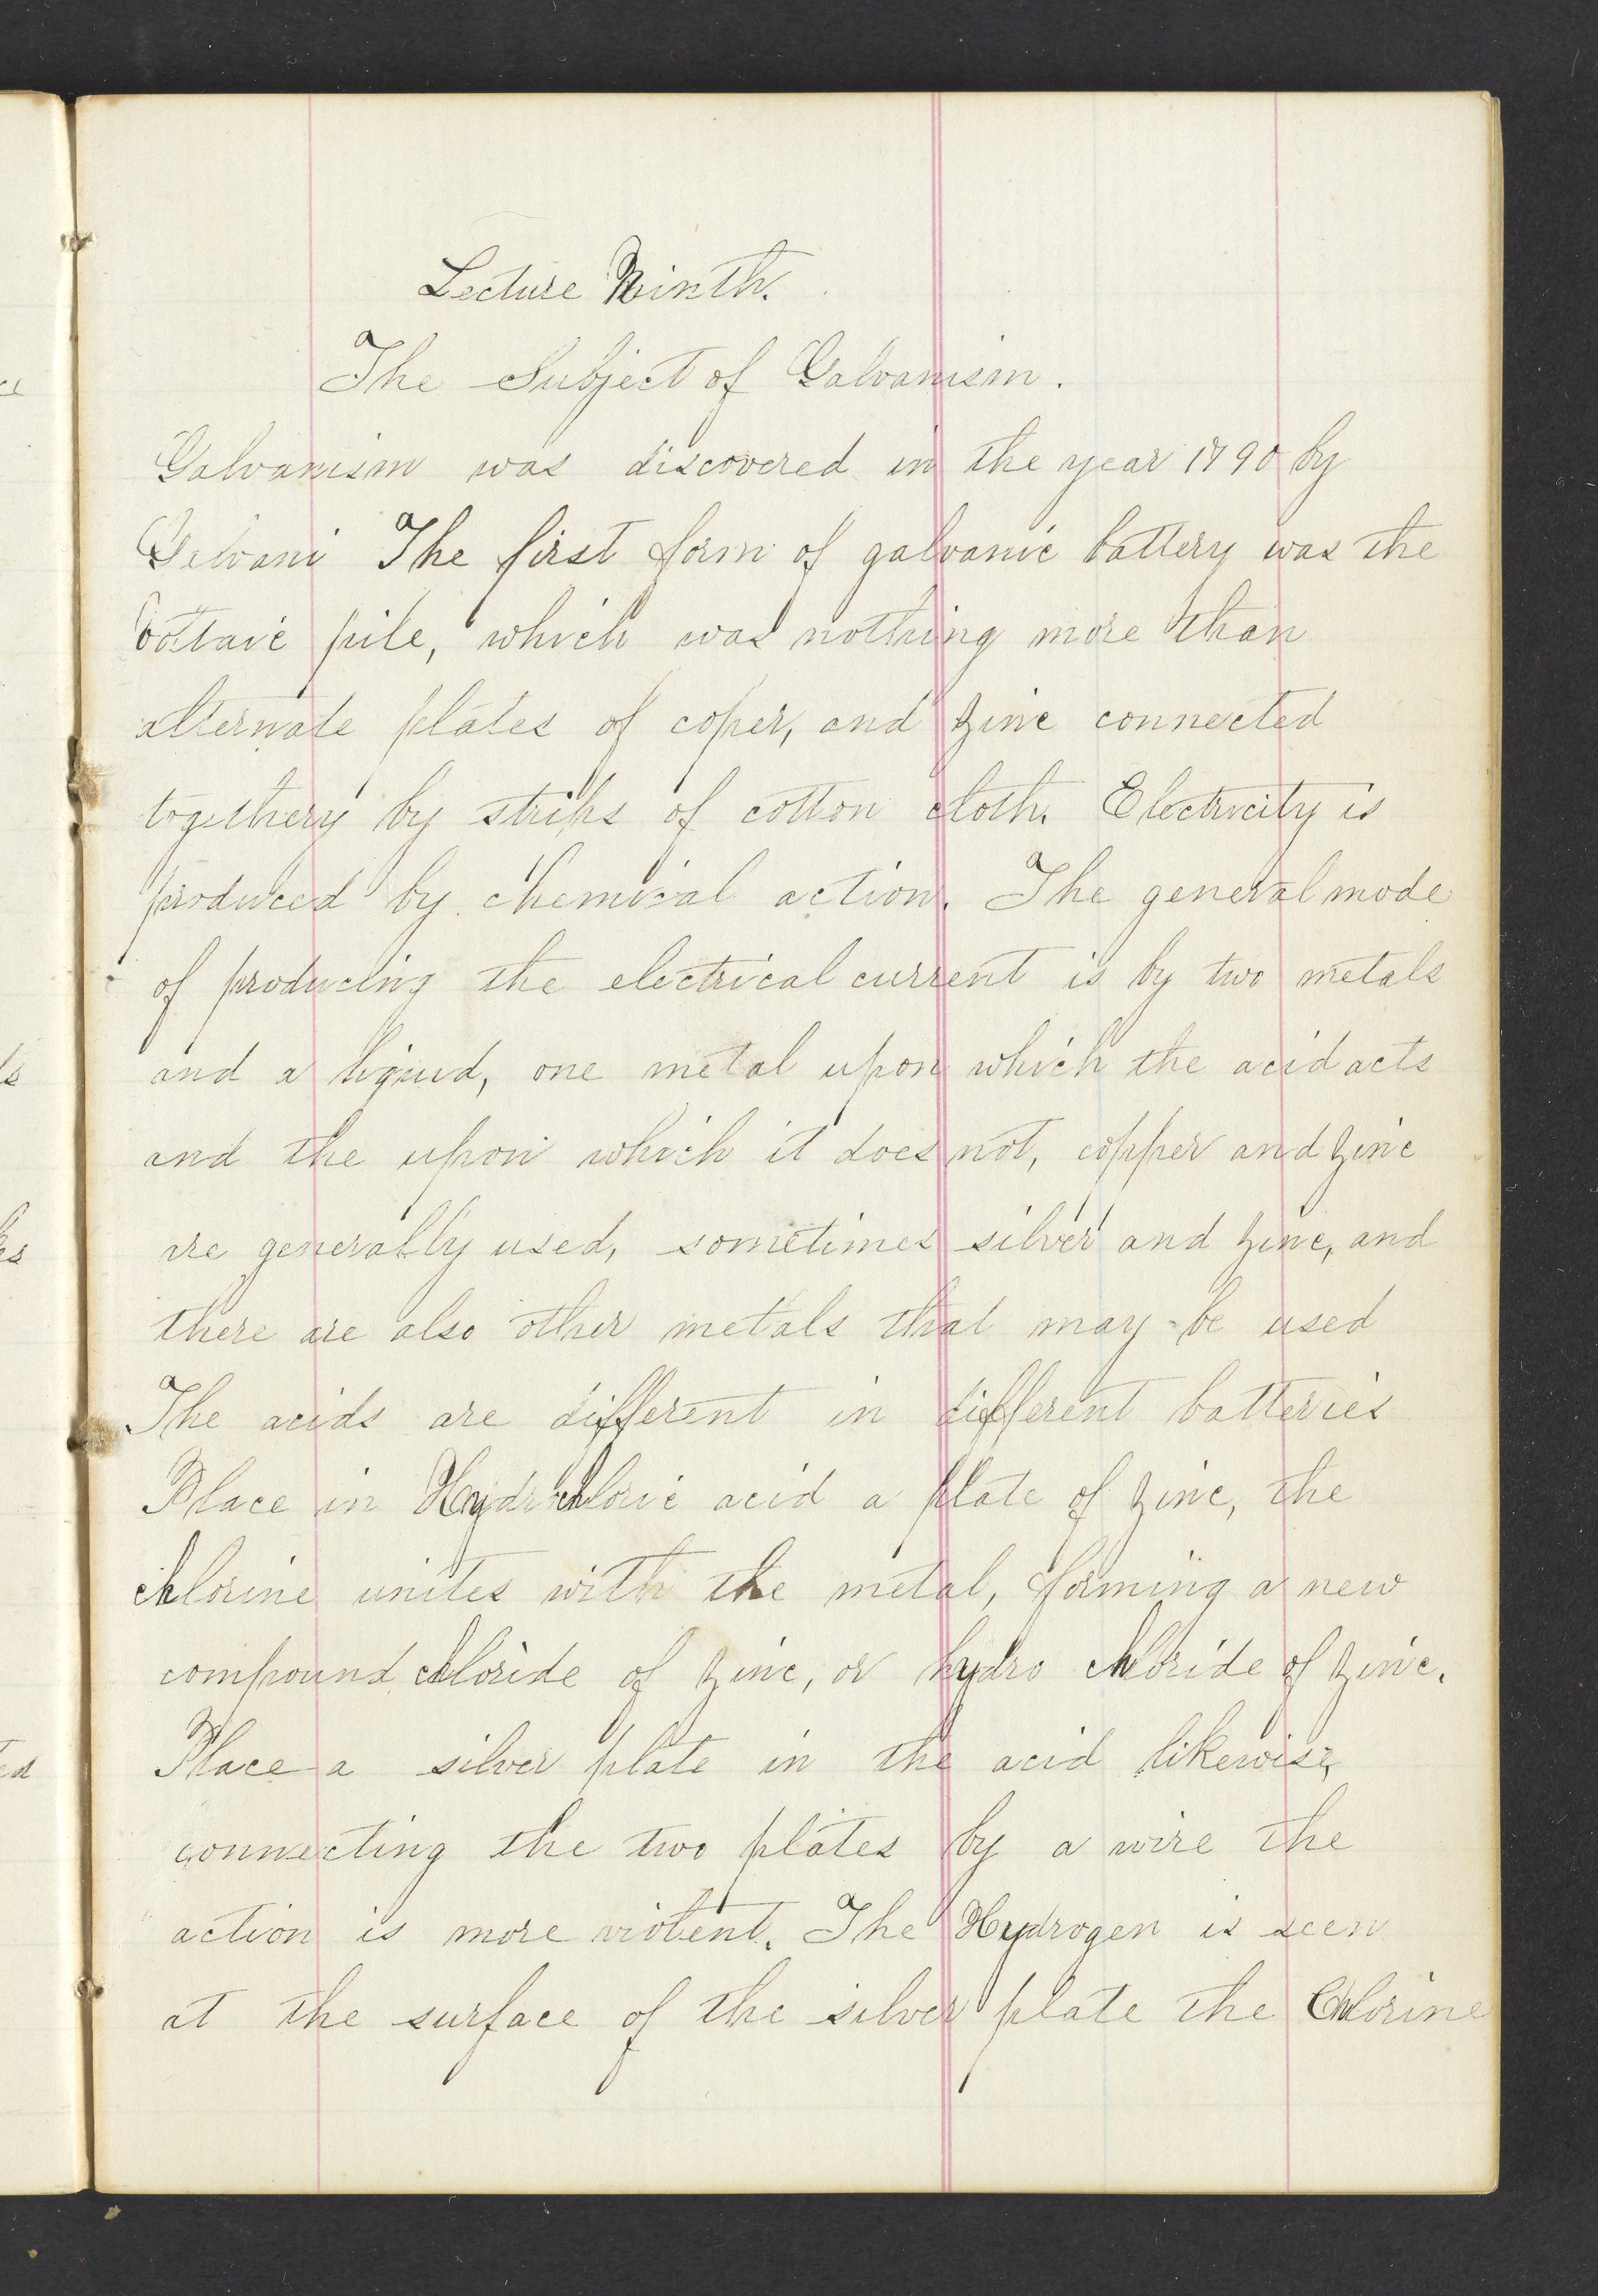 Lecture Ninth.
The Subject of Galvanism.
Galvanism was discovered in the year 1790 by
Gelvani The first form of galvanic battery was the
Voltaic pile, which was nothing more than
alternate plates of coper, and zinc connected
togethery by strips of cotton cloth. Electricity is
produced by chemical action. The general mode
of producing the electrical current is by two metals
and a liquid, one metal upon which the acid acts
and the upon which it does not, copper and zinc
are generally used, sometimes silver and zinc, and
there are also other metals that may be used
The acids are different in different batteries
Place in Hydrochloric acid a plate of zinc, the
chlorine unites with the metal, forming a new
compound chloride of zinc, or hydro chloride of zinc.
Place a silver plate in the acid likewise,
connecting the two plates by a wire the
action is more violent. The Hydrogen is seen
at the surface of the silver plate the Chlorine